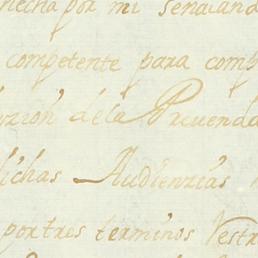 hecha por mi señaland
competente para comb
dela Prevenda
dichas Audienzias
por tres terminos Vestr